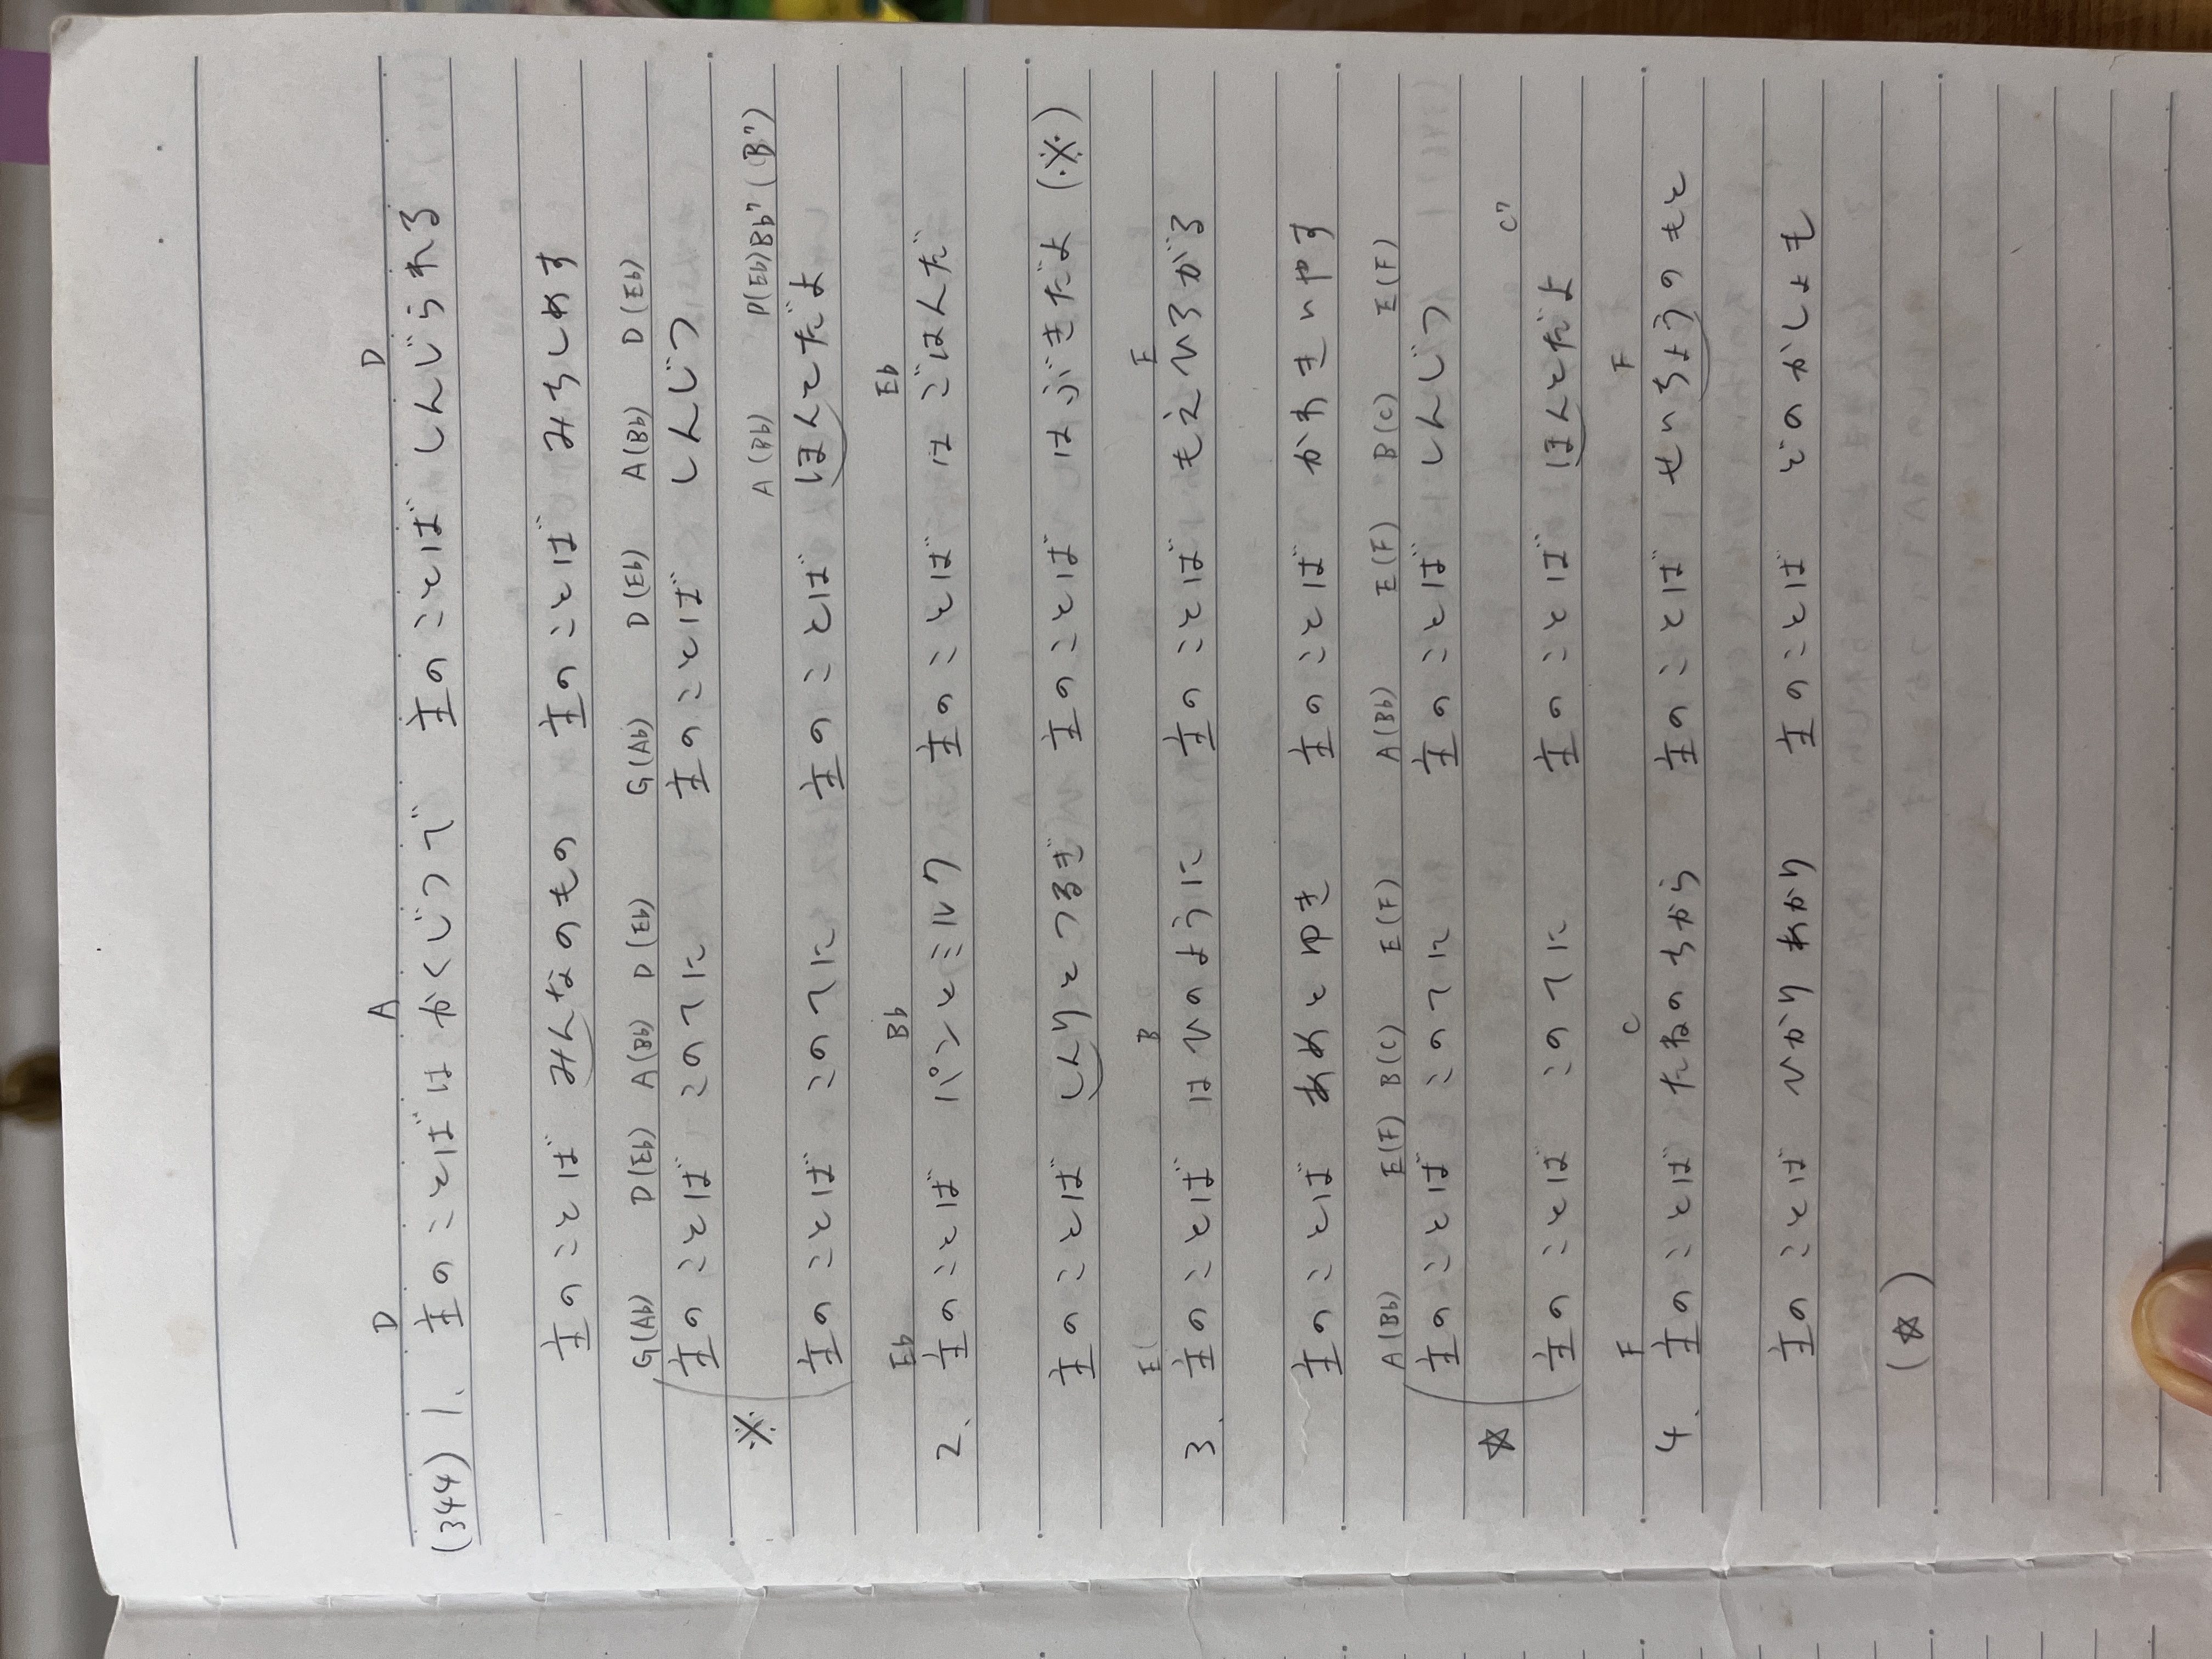 D A D
(344) 1. 主のことばは かくじつで 主のことば しんじられる
主のことば みんなのもの 主のことば みちしめす
G(A♭) D(E♭) A(B♭) D(E♭) G(A♭) D(E♭) A(B♭) D(E♭)
主のことば このてに 主のことば しんじつ
※ A(B♭) D(E♭) B♭7 (B7)
主のことば このてに 主のことば ほんとだよ
E♭ B♭ E♭
2. 主のことば パンとミルク 主のことば は ごはんだ
主のことば しんりとつるぎ 主のことば は ぶきだよ (※)
E B E
3. 主のことば は ひのように 主のことば もえひろがる
主のことば あめとゆき 主のことば かわきいやす
A(B♭) E(F) B(C) E(F) A(B♭) E(F) B(C) E(F)
主のことば このてに 主のことば しんじつ
☆ C7
主のことば このてに 主のことば ほんとだよ
F C F
4. 主のことば たねのちから 主のことば せいちょうのもと
主のことば ひかりあかり 主のことば どのかしょも
(☆)